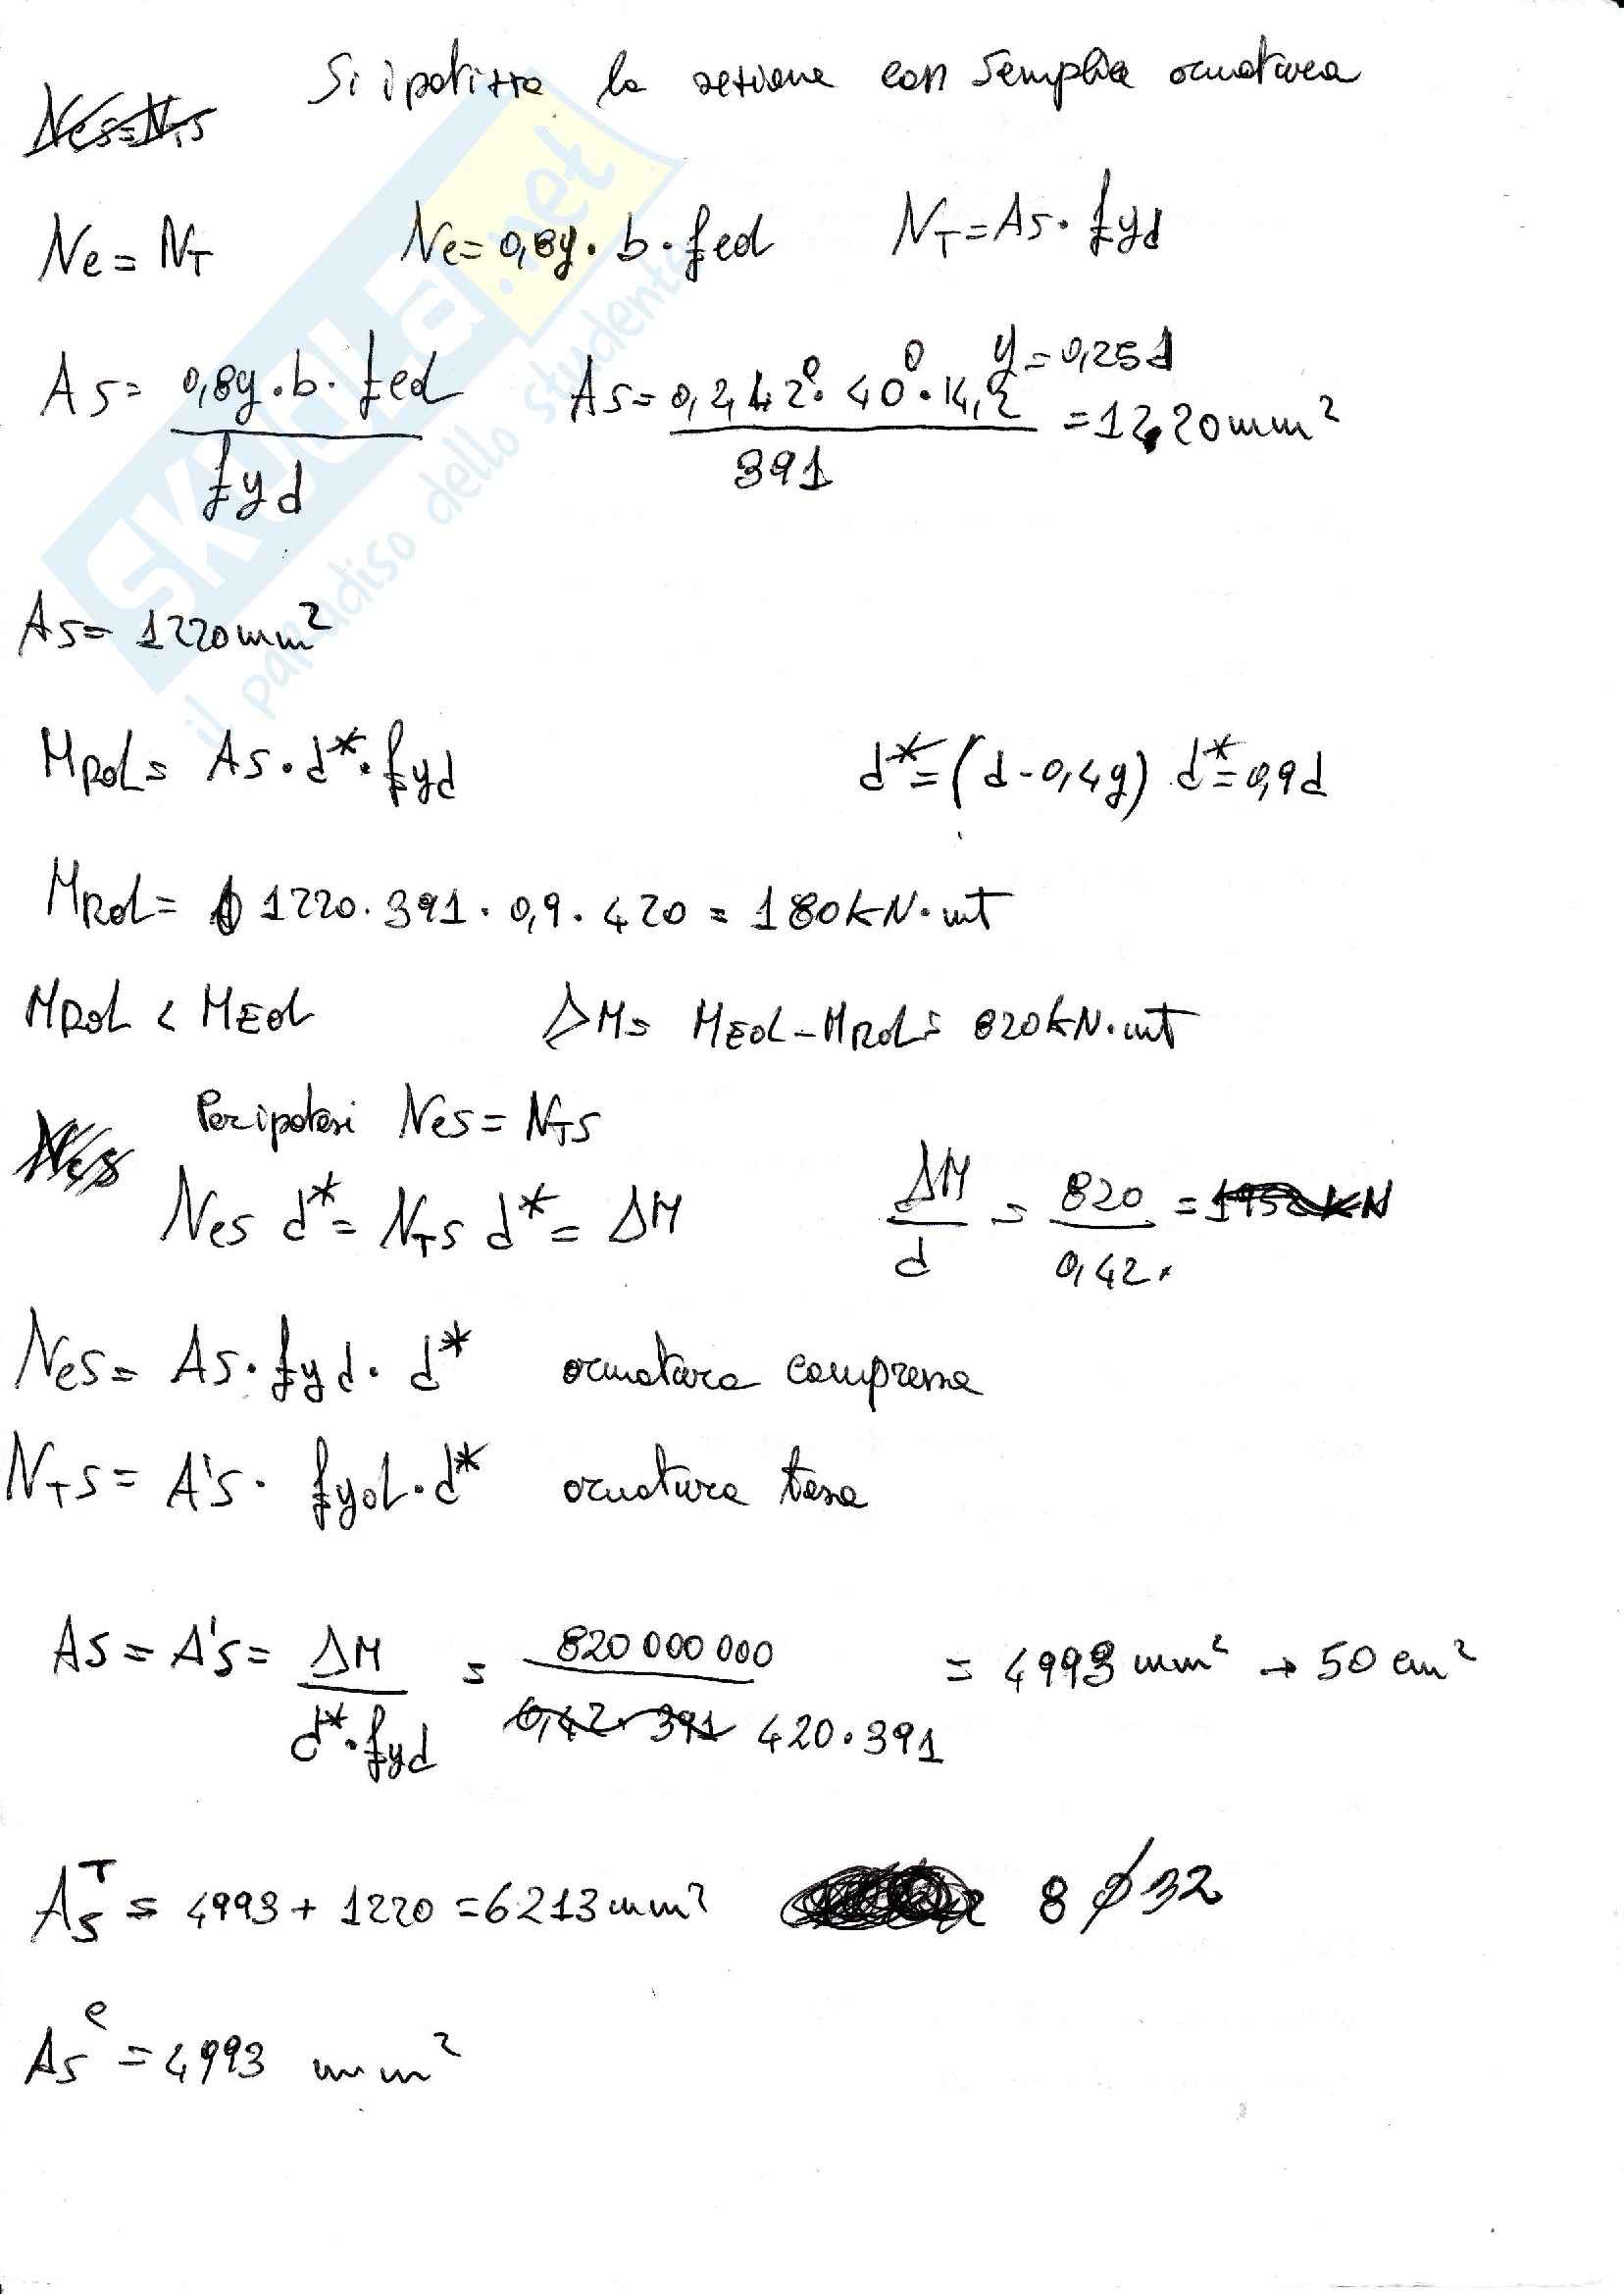 Si ipotizza la sezione con semplice armatura
Nc = NT Nc = 0,8y · b · fcd NT = As · fyd
y = 0,25d
As = 0,8y · b · fcd / fyd As = 0,2 · 420 · 400 · 14,2 / 391 = 1220 mm²
As = 1220 mm²
MRd = As · d* · fyd d* = (d - 0,4y) d* = 0,9d
MRd = 1220 · 391 · 0,9 · 420 = 180 kN · mt
MRd < MEd ΔM = MEd - MRd = 820 kN · mt
Per ipotesi Ncs = NTs
Ncs d* = NTs d* = ΔM ΔM / d = 820 / 0,42 =
Ncs = As · fyd · d* armatura compressa
NTs = A's · fyd · d* armatura tesa
As = A's = ΔM / d* · fyd = 820 000 000 / 420 · 391 = 4993 mm² → 50 cm²
As^T = 4993 + 1220 = 6213 mm² 8 ϕ 32
As^c = 4993 mm²
SKUOLA.net
il paradiso dello studente